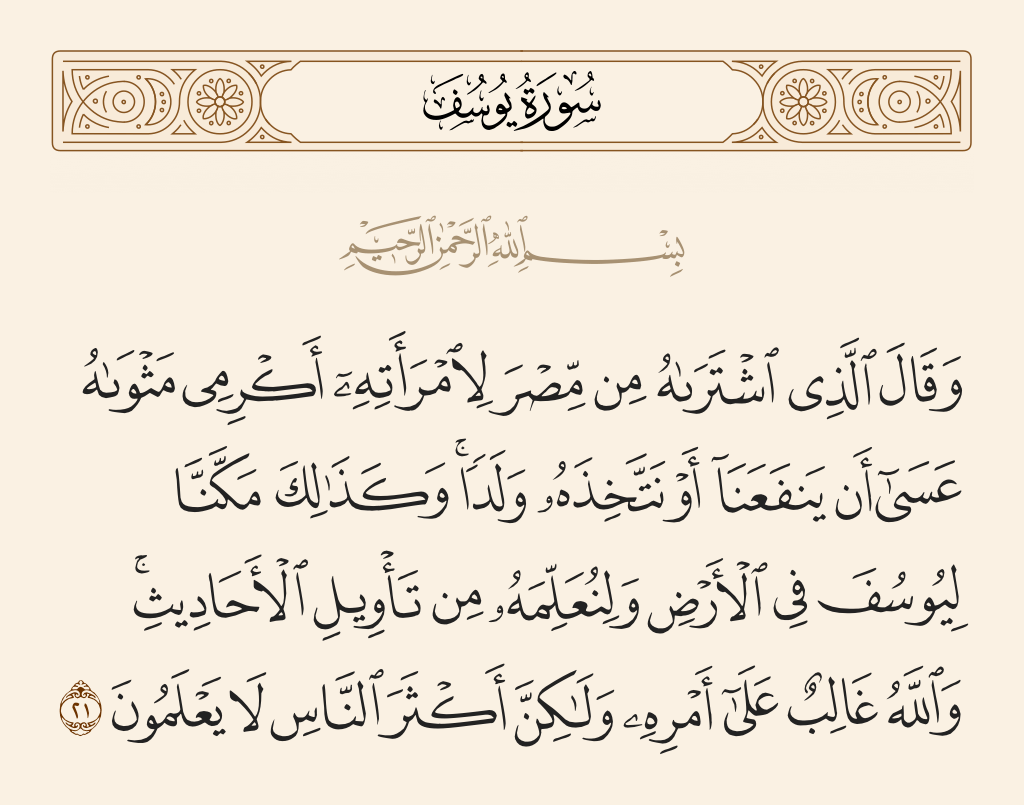 سُورَةُ يُوسُفَ
بِسْمِ ٱللَّهِ ٱلرَّحْمَٰنِ ٱلرَّحِيمِ
وَقَالَ ٱلَّذِى ٱشْتَرَىٰهُ مِن مِّصْرَ لِٱمْرَأَتِهِۦٓ أَكْرِمِى مَثْوَىٰهُ
عَسَىٰٓ أَن يَنفَعَنَآ أَوْ نَتَّخِذَهُۥ وَلَدًا ۚ وَكَذَٰلِكَ مَكَّنَّا
لِيُوسُفَ فِى ٱلْأَرْضِ وَلِنُعَلِّمَهُۥ مِن تَأْوِيلِ ٱلْأَحَادِيثِ ۚ
وَٱللَّهُ غَالِبٌ عَلَىٰٓ أَمْرِهِۦ وَلَٰكِنَّ أَكْثَرَ ٱلنَّاسِ لَا يَعْلَمُونَ ٢١